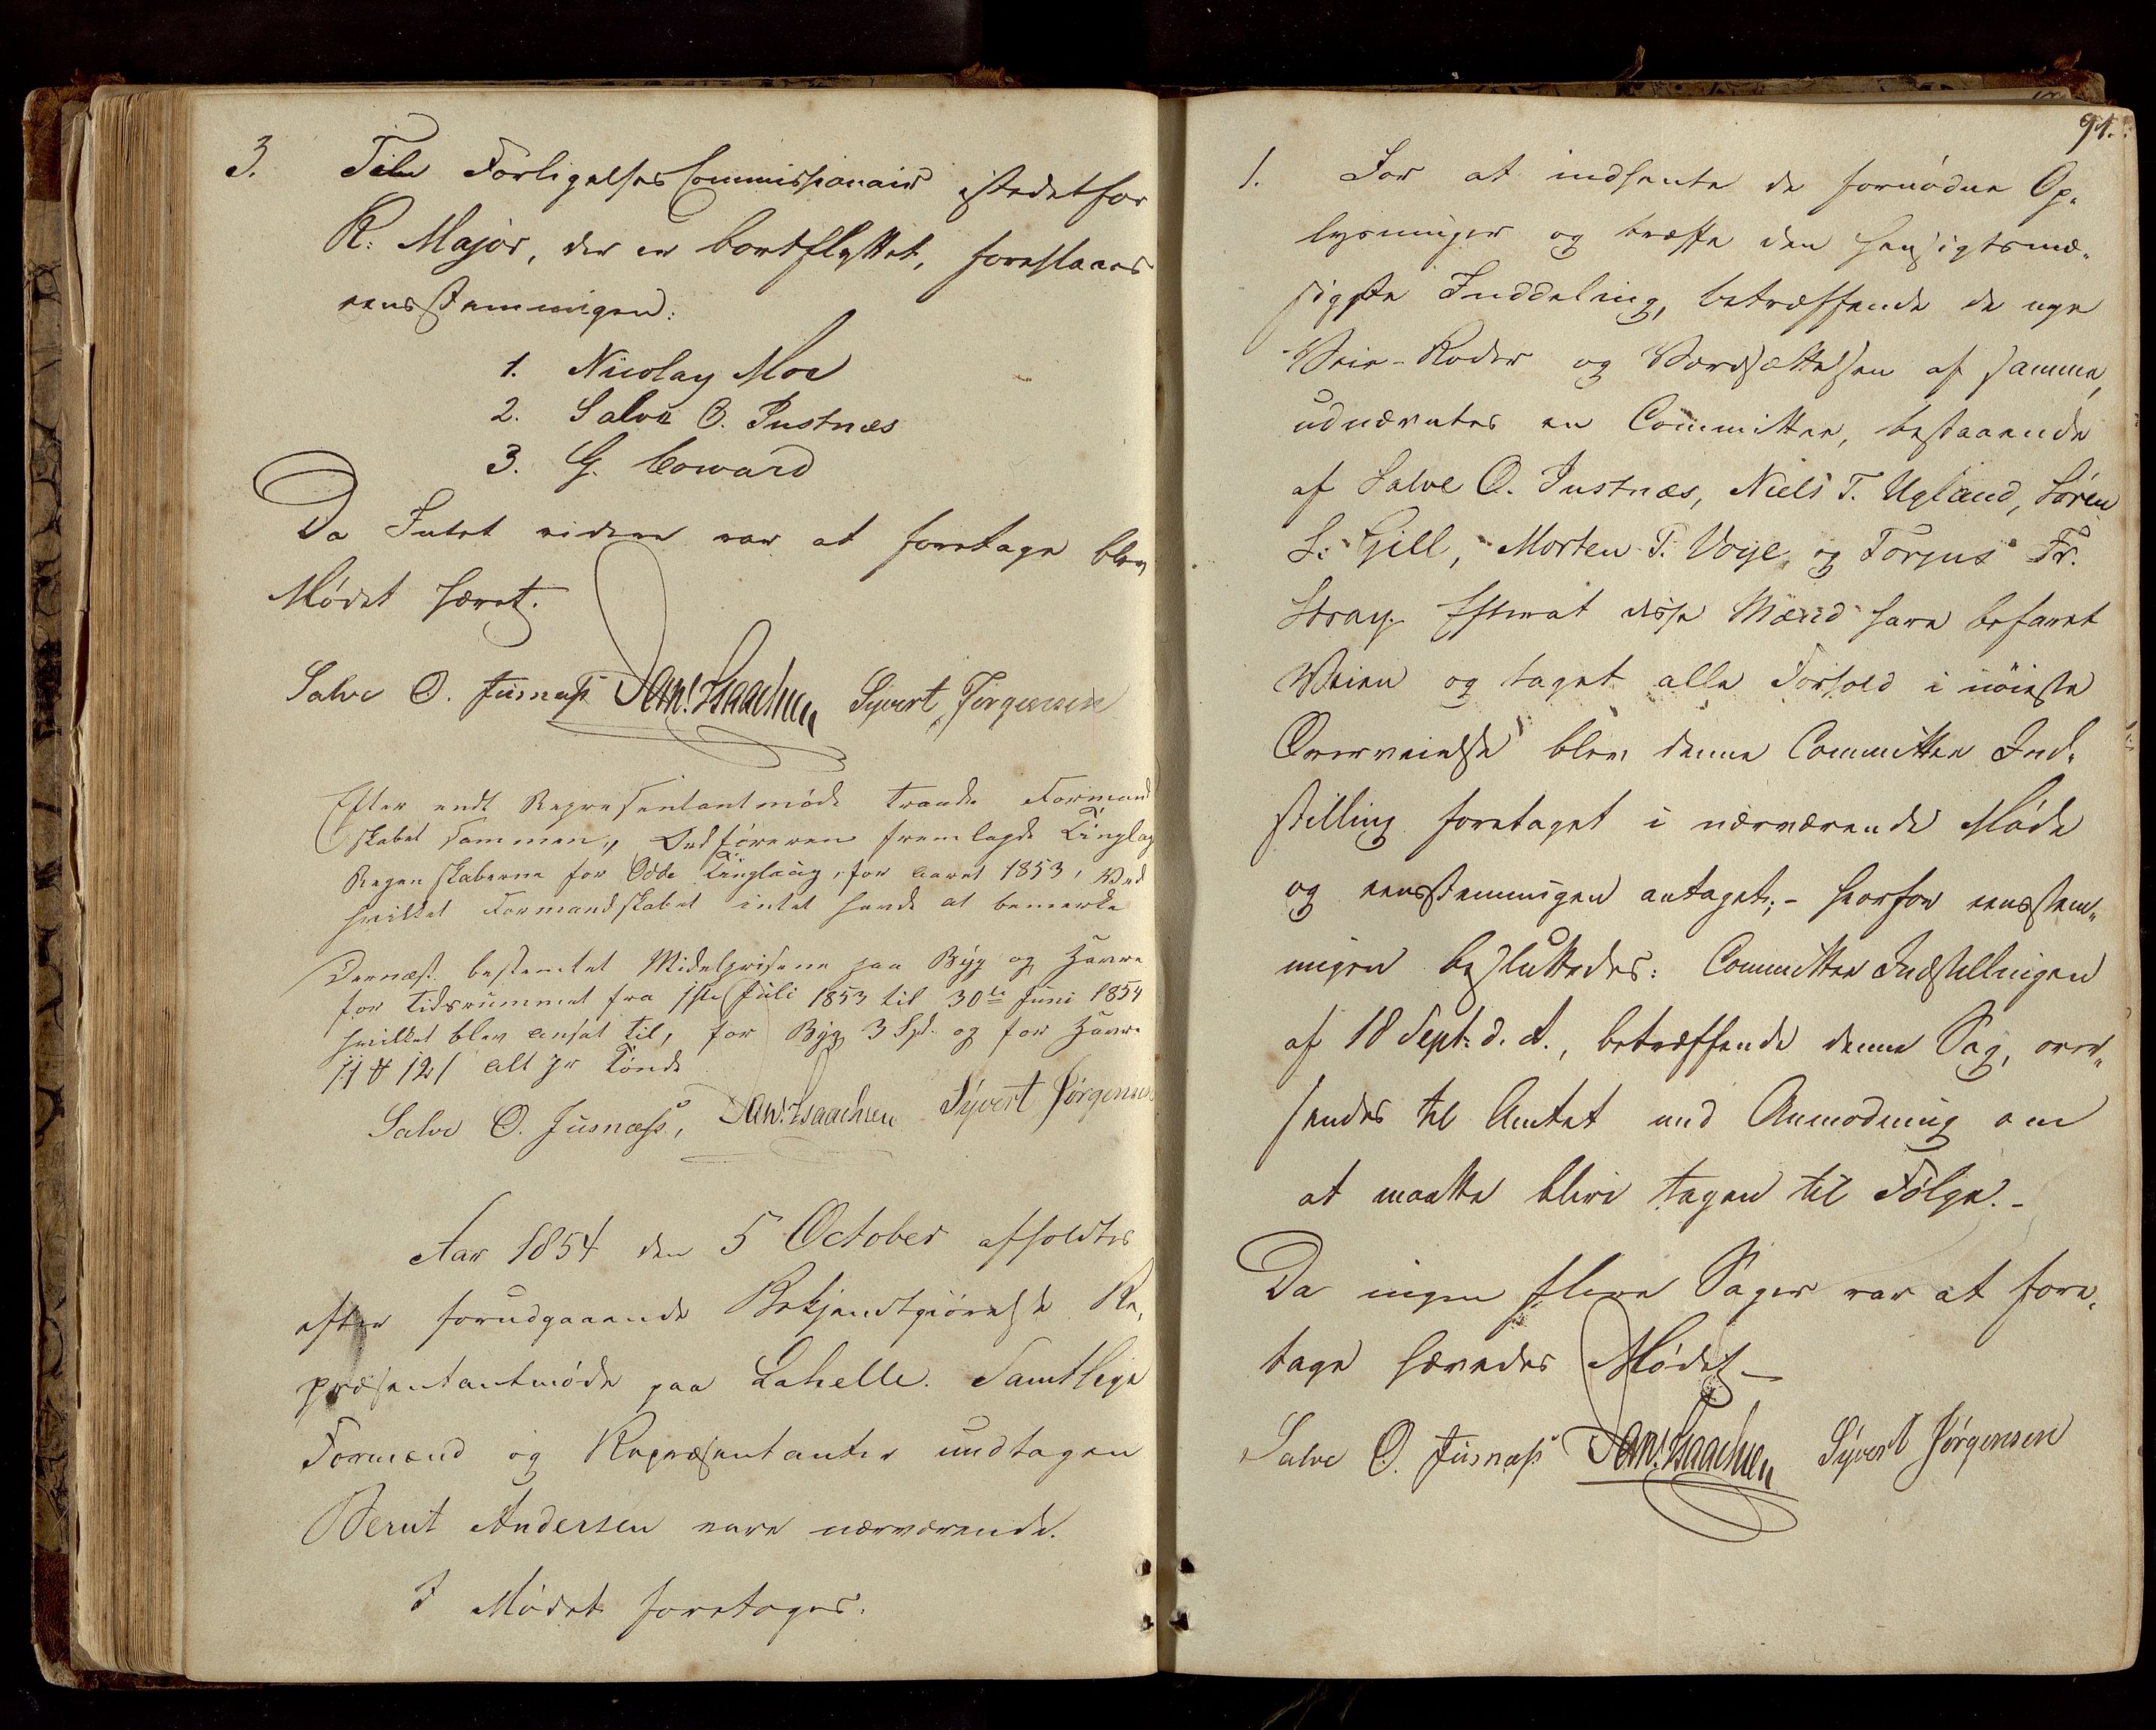 3. Til Forligelses Commissionair istedetfor
R. Major, der er bortflyttet, foreslaaes
eensstemmigen:
1. Nicolay Moe
2. Salve O. Justnæs
3. G. Coward
Da Intet videre var at foretage blev
Mødet hævet.
Salve O. Jusnæss Dan! Isaachsen Syvert Jørgensen
Efter endt Represententmøde traade Formand
skabet sammen, Ordføreren fremlagde Tinglag
Regenskaberne for Odde Tinglaug, for aaret 1853, Ved
hvilket Formandskabet intet havde at bemerke
Dernæst bestemtet Midelprisene paa Byg og Havre
for tidsrummet fra 1ste Juli 1853 til 30te Juni 1854
hvilket blev ansat til, for Byg 3 Spd. og for Havre
alt pr Tønde
Salve O. Jusnæss, Dan! Isaachsen Syvert Jørgensen
Aar 1854 den 5 October afholdtes
efter forudgaaende Bekjendtgjørelse Re,
præsentantmøde paa Lahelle. Samtlige
Formænd og Repræsentanter undtagen
Bernt Andersen vare nærværende.
I Mødet foretoges:
91.
1. For at indhente de fornødne Op,
lysninger og træffe den hensigtsmæ,
sigste Inddeling, betræffende de nye
Veie-Roder og Værdsættelsen af samme,
udnævntes en Committee, bestaaende
af Salve O. Justnæs, Niels T. Ugland, Søren
S. Gill, Morten T. Voije og Torjus Fr.
Stray. Efterat disse Mænd have befaret
Veien og taget alle Forhold i nøieste
Overveielse blev denne Committee Ind,
stilling foretaget i nærværende Møde
og eensstemmigen antaget; - hvorfor eensstem,
migen besluttedes: Committee Indstillingen
af 18 Sept: d. A., betræffende denne Sag, over,
sendes til Amtet med Anmodning om
at maatte blive tagen til Følge. -
Da ingen flere Sager var at fore,
tage hævedes Mødet -
Salve O. Jusnæss Dan! Isaachsen Syvert Jørgensen